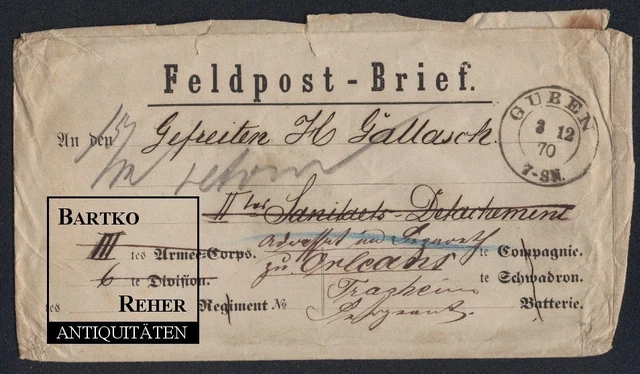 Feldpost-Brief.
GUBEN
3 12
70
7-8N.
An den Gefreiten H Gallasch.
retour
II tes Sanitaets-Detachement
III tes Armee-Corps. Adressat im Lazareth te Compagnie.
6 te Division. zu Orleans te Schwadron.
tes Regiment No Batterie.
Sergeant.
BARTKO
REHER
ANTIQUITÄTEN